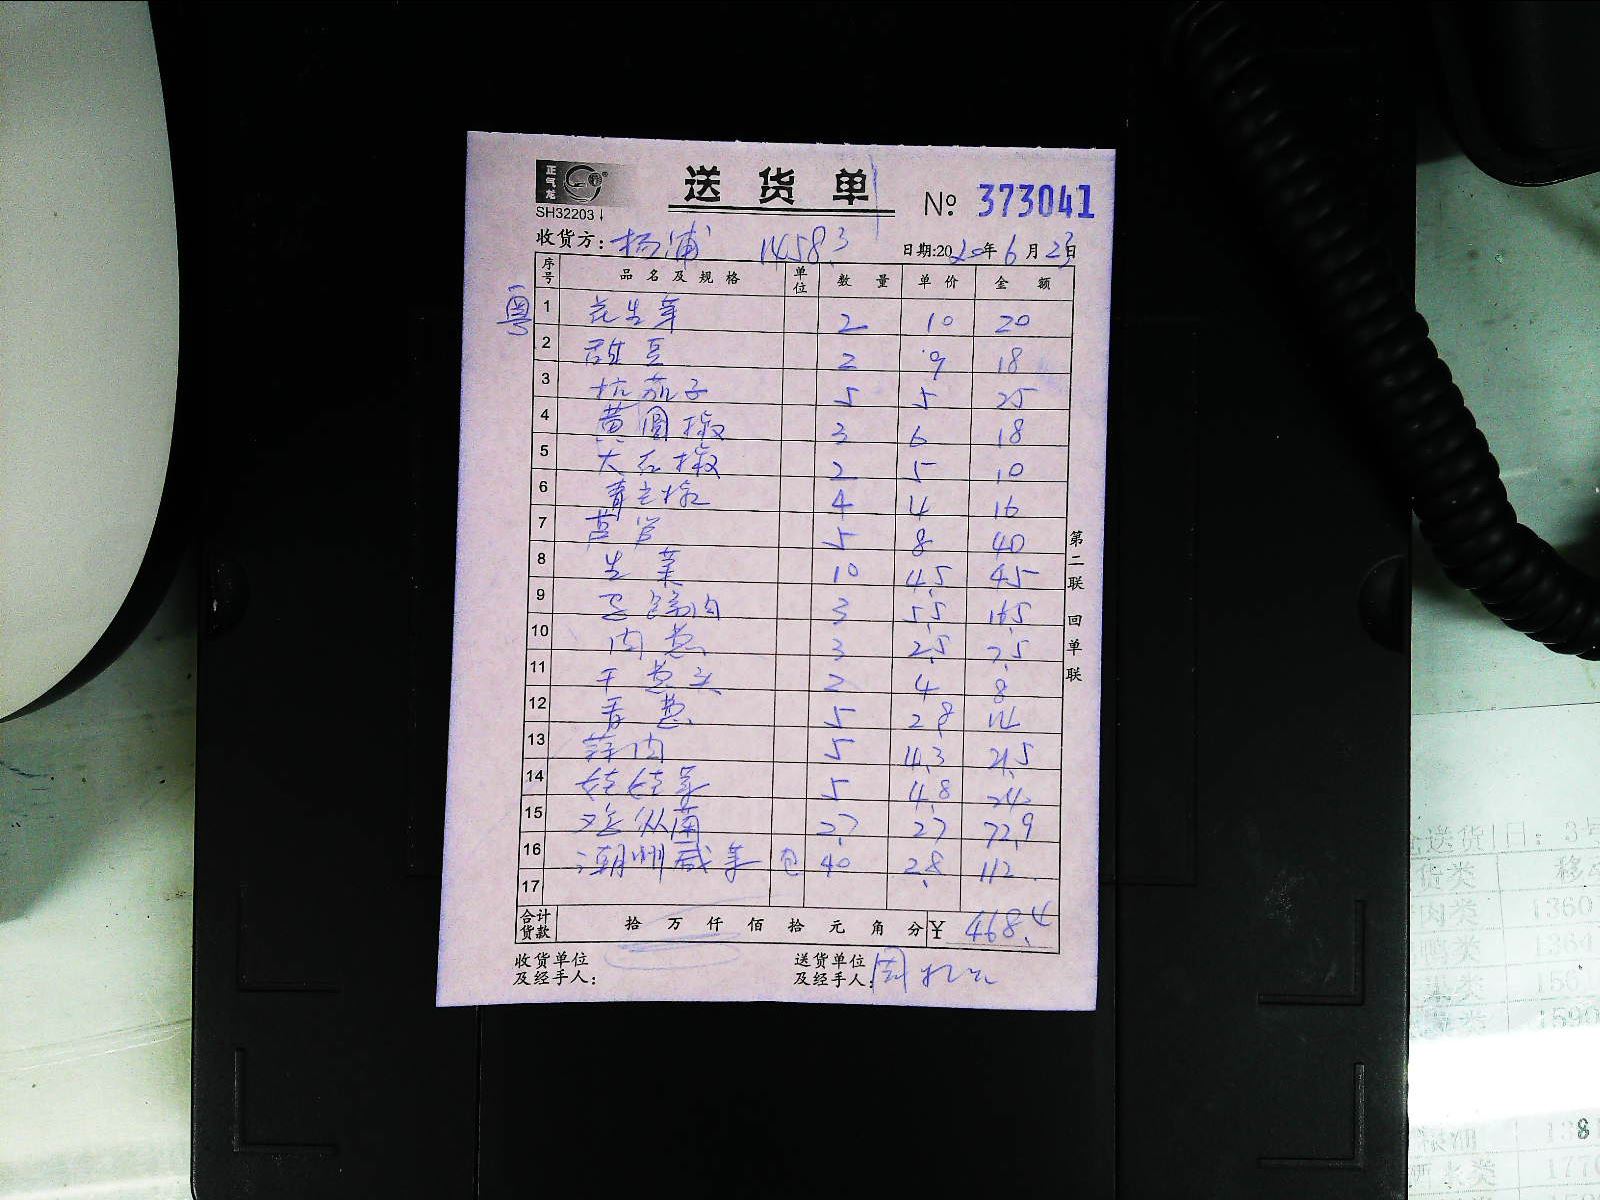 正气龙
SH32203
送货单 № 373041
收货方：杨浦 1458.3 日期:2020年6月23日
粤
序号 品名及规格 单位 数量 单价 金额
1 花生芽 2 10 20
2 甜豆 2 9 18
3 杭茄子 5 5 25
4 黄圆椒 3 6 18
5 大红椒 2 5 10
6 青尖椒 4 4 16
7 莴笋 5 8 40
8 生菜 10 4.5 45
9 3 5.5 16.5
10 肉葱 3 2.5 7.5
11 干葱头 2 4 8
12 香葱 5 2.8 14
13 蒜肉 5 4.3 21.5
14 娃娃菜 5 4.8 24
15 鸡枞菌 2.7 27 72.9
16 潮州咸菜 包 40 2.8 112
17
合计货款 拾 万 仟 佰 拾 元 角 分 ¥ 468.4
收货单位及经手人： 送货单位及经手人：周
第二联 回单联
送货 日：3号
类 移
肉类 1360
鸭类 1364
类 159
类 1590
138
类 1770